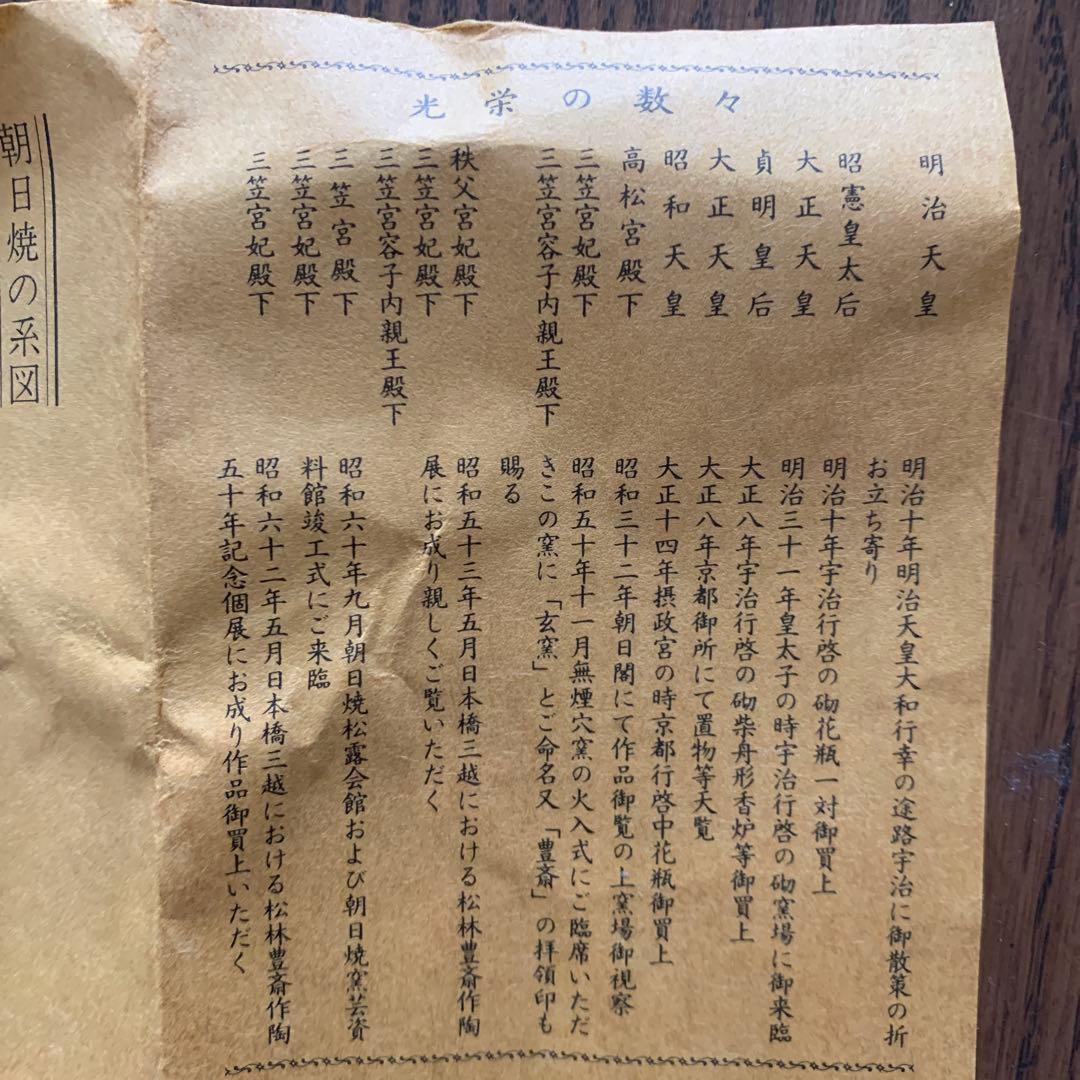 光栄の数々
明治天皇
明治十年明治天皇大和行幸の途路宇治に御散策の折
お立ち寄り
昭憲皇太后
明治十年宇治行啓の砌花瓶一対御買上
大正天皇
明治三十一年皇太子の時宇治行啓の砌窯場に御来臨
貞明皇后
大正八年宇治行啓の砌柴舟形香炉等御買上
大正天皇
大正八年京都御所にて置物等天覧
昭和天皇
大正十四年摂政宮の時京都行啓中花瓶御買上
高松宮殿下
昭和三十二年朝日閣にて作品御覧の上窯場御視察
三笠宮妃殿下
昭和五十年十一月無煙穴窯の火入式にご臨席いただ
三笠宮容子内親王殿下
きこの窯に「玄窯」とご命名又「豊斎」の拝領印も
賜る
秩父宮妃殿下
昭和五十三年五月日本橋三越における松林豊斎作陶
三笠宮妃殿下
展にお成り親しくご覧いただく
三笠宮容子内親王殿下
三笠宮殿下
昭和六十年九月朝日焼松露会館および朝日焼窯芸資
三笠宮妃殿下
料館竣工式にご来臨
三笠宮妃殿下
昭和六十二年五月日本橋三越における松林豊斎作陶
五十年記念個展にお成り作品御買上いただく
朝日焼の系図